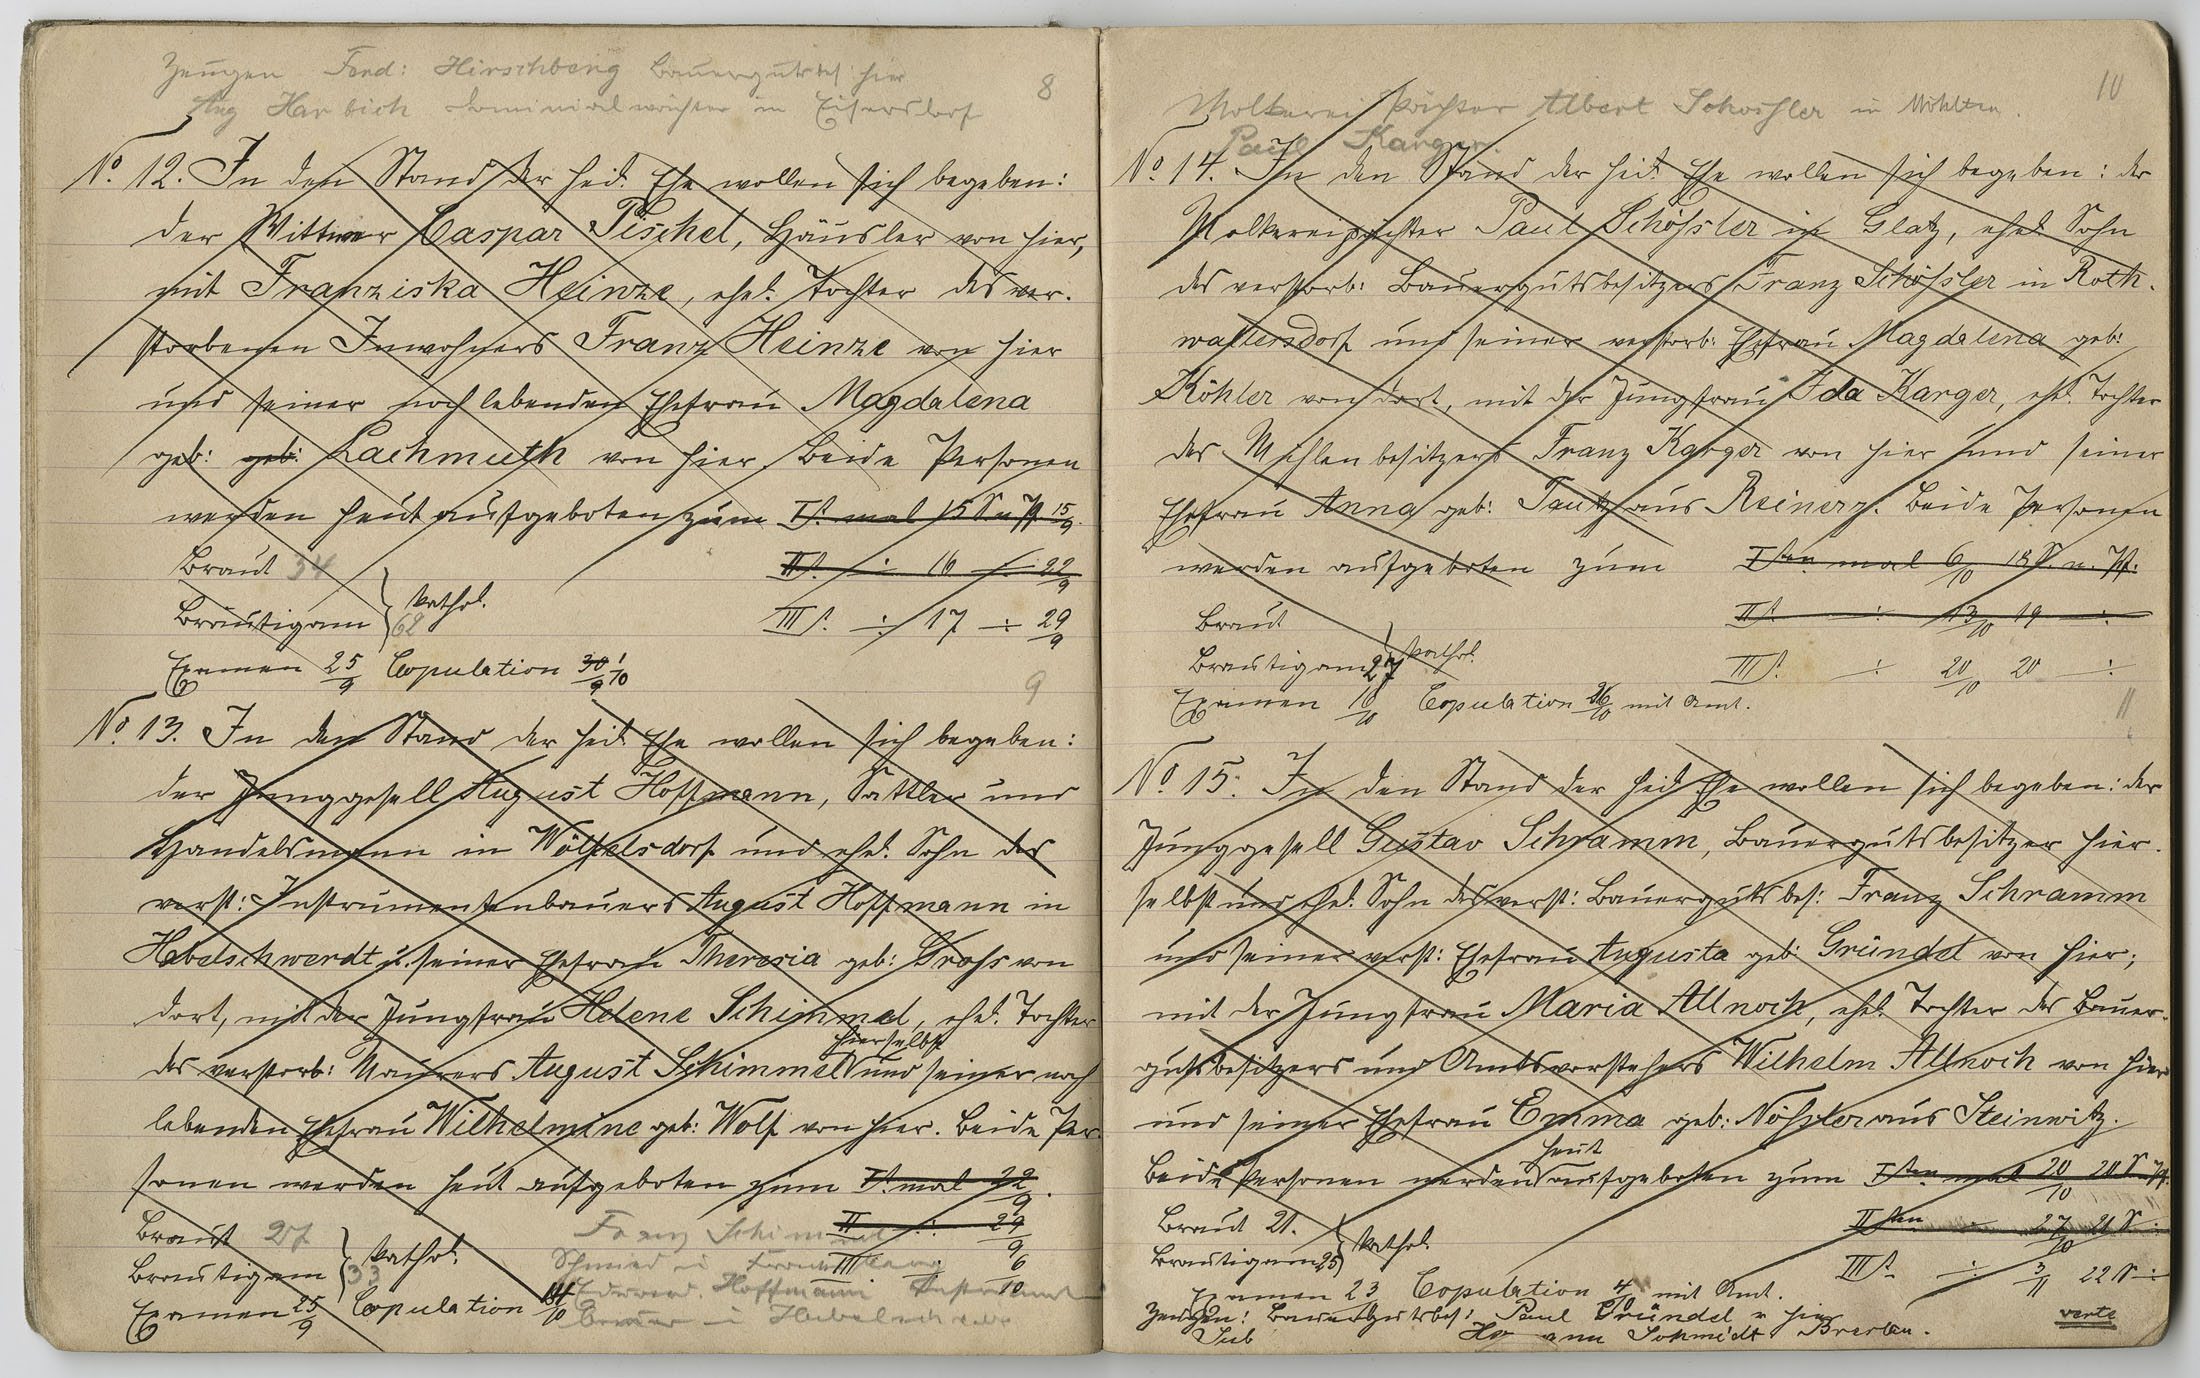 Zeugen Ferd: Hirschberg Bauergutsbes: hier
8
Aug Harbich Dominialwächter in Eisersdorf
No. 12. In den Stand der heil. Ehe wollen sich begeben:
der Wittwer Caspar Pischel, Häusler von hier,
mit Franziska Heinze, ehel. Tochter des ver-
storbenen Inwohners Franz Heinze von hier
und seiner noch lebenden Ehefrau Magdalena
geb: geb: Lachmuth von hier. Beide Personen
werden heut aufgeboten zum I. mal 15 S. n. Pf. 15/9.
Braut 34
II. ÷ 16 ÷ 22/9
Bräutigam 62 } kathol.
III. ÷ 17 ÷ 29/9
Examen 25/9 Copulation 30/9 1/10
9
No. 13. In den Stand der heil. Ehe wollen sich begeben:
der Junggesell August Hoffmann, Sattler und
Handelsmann in Wölfelsdorf und ehel. Sohn des
verst: Instrumentenbauers August Hoffmann in
Habelschwerdt u. seiner Ehefrau Theresia geb: Gross von
dort, mit der Jungfrau Helene Schimmel, ehel. Tochter
hierselbst
des verstorb: Maurers August Schimmel und seiner noch
lebenden Ehefrau Wilhelmine geb: Wolf von hier. Beide Per-
sonen werden heut aufgeboten zum I. mal 22/9.
Braut 27
Franz Schimmel
II ÷ 29/9
Bräutigam 33 } kathol.
Schmied in
III ÷ 6/10
Hoffmann Instrument
Examen 25/9 Copulation /10
bauer in Habelschwerdt
10
Molkerei Pächter Albert Schössler in Möhlten.
Paul Karger.
No. 14. In den Stand der heil. Ehe wollen sich begeben: der
Molkereipächter Paul Schössler in Glatz, ehel. Sohn
des verstorb: Bauergutsbesitzers Franz Schössler in Roth-
waltersdorf und seiner verstorb: Ehefrau Magdalena geb:
Köhler von dort, mit der Jungfrau Ida Karger, ehel. Tochter
des Mühlenbesitzers Franz Karger von hier und seiner
Ehefrau Anna geb: Tautz aus Reinerz. Beide Personen
werden aufgeboten zum Iten mal 6/10 18 S. n. Pf.
Braut
II. ÷ 13/10 19 ÷
Bräutigam 27 } kathol.
III. ÷ 20/10 20 ÷
Examen 16/10 Copulation 26/10 mit Amt.
11
No. 15. In den Stand der heil. Ehe wollen sich begeben: der
Junggesell Gustav Schramm, Bauergutsbesitzer hier-
selbst und ehel. Sohn des verst: Bauergutsbes: Franz Schramm
und seiner verst: Ehefrau Augusta geb: Gründel von hier;
mit der Jungfrau Maria Allnoch, ehel. Tochter des Bauer-
gutsbesitzers und Amtsvorstehers Wilhelm Allnoch von hier
und seiner Ehefrau Emma geb: Nössler aus Steinwitz.
heut
Beide Personen werden aufgeboten zum Iten mal 20/10 20 S. n. Pf.
Braut 21.
IIten ÷ 27/10 21 S ÷
Bräutigam 25 } kathol.
III. ÷ 3/11 22 S ÷
Examen 23 Copulation 4/ mit Amt.
Zeugen: Bauergutsbes: Paul Gründel v hier
verte
Schmidt Breslau.